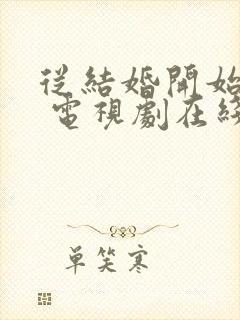 從結婚開始
電視劇在綫
單笑寒